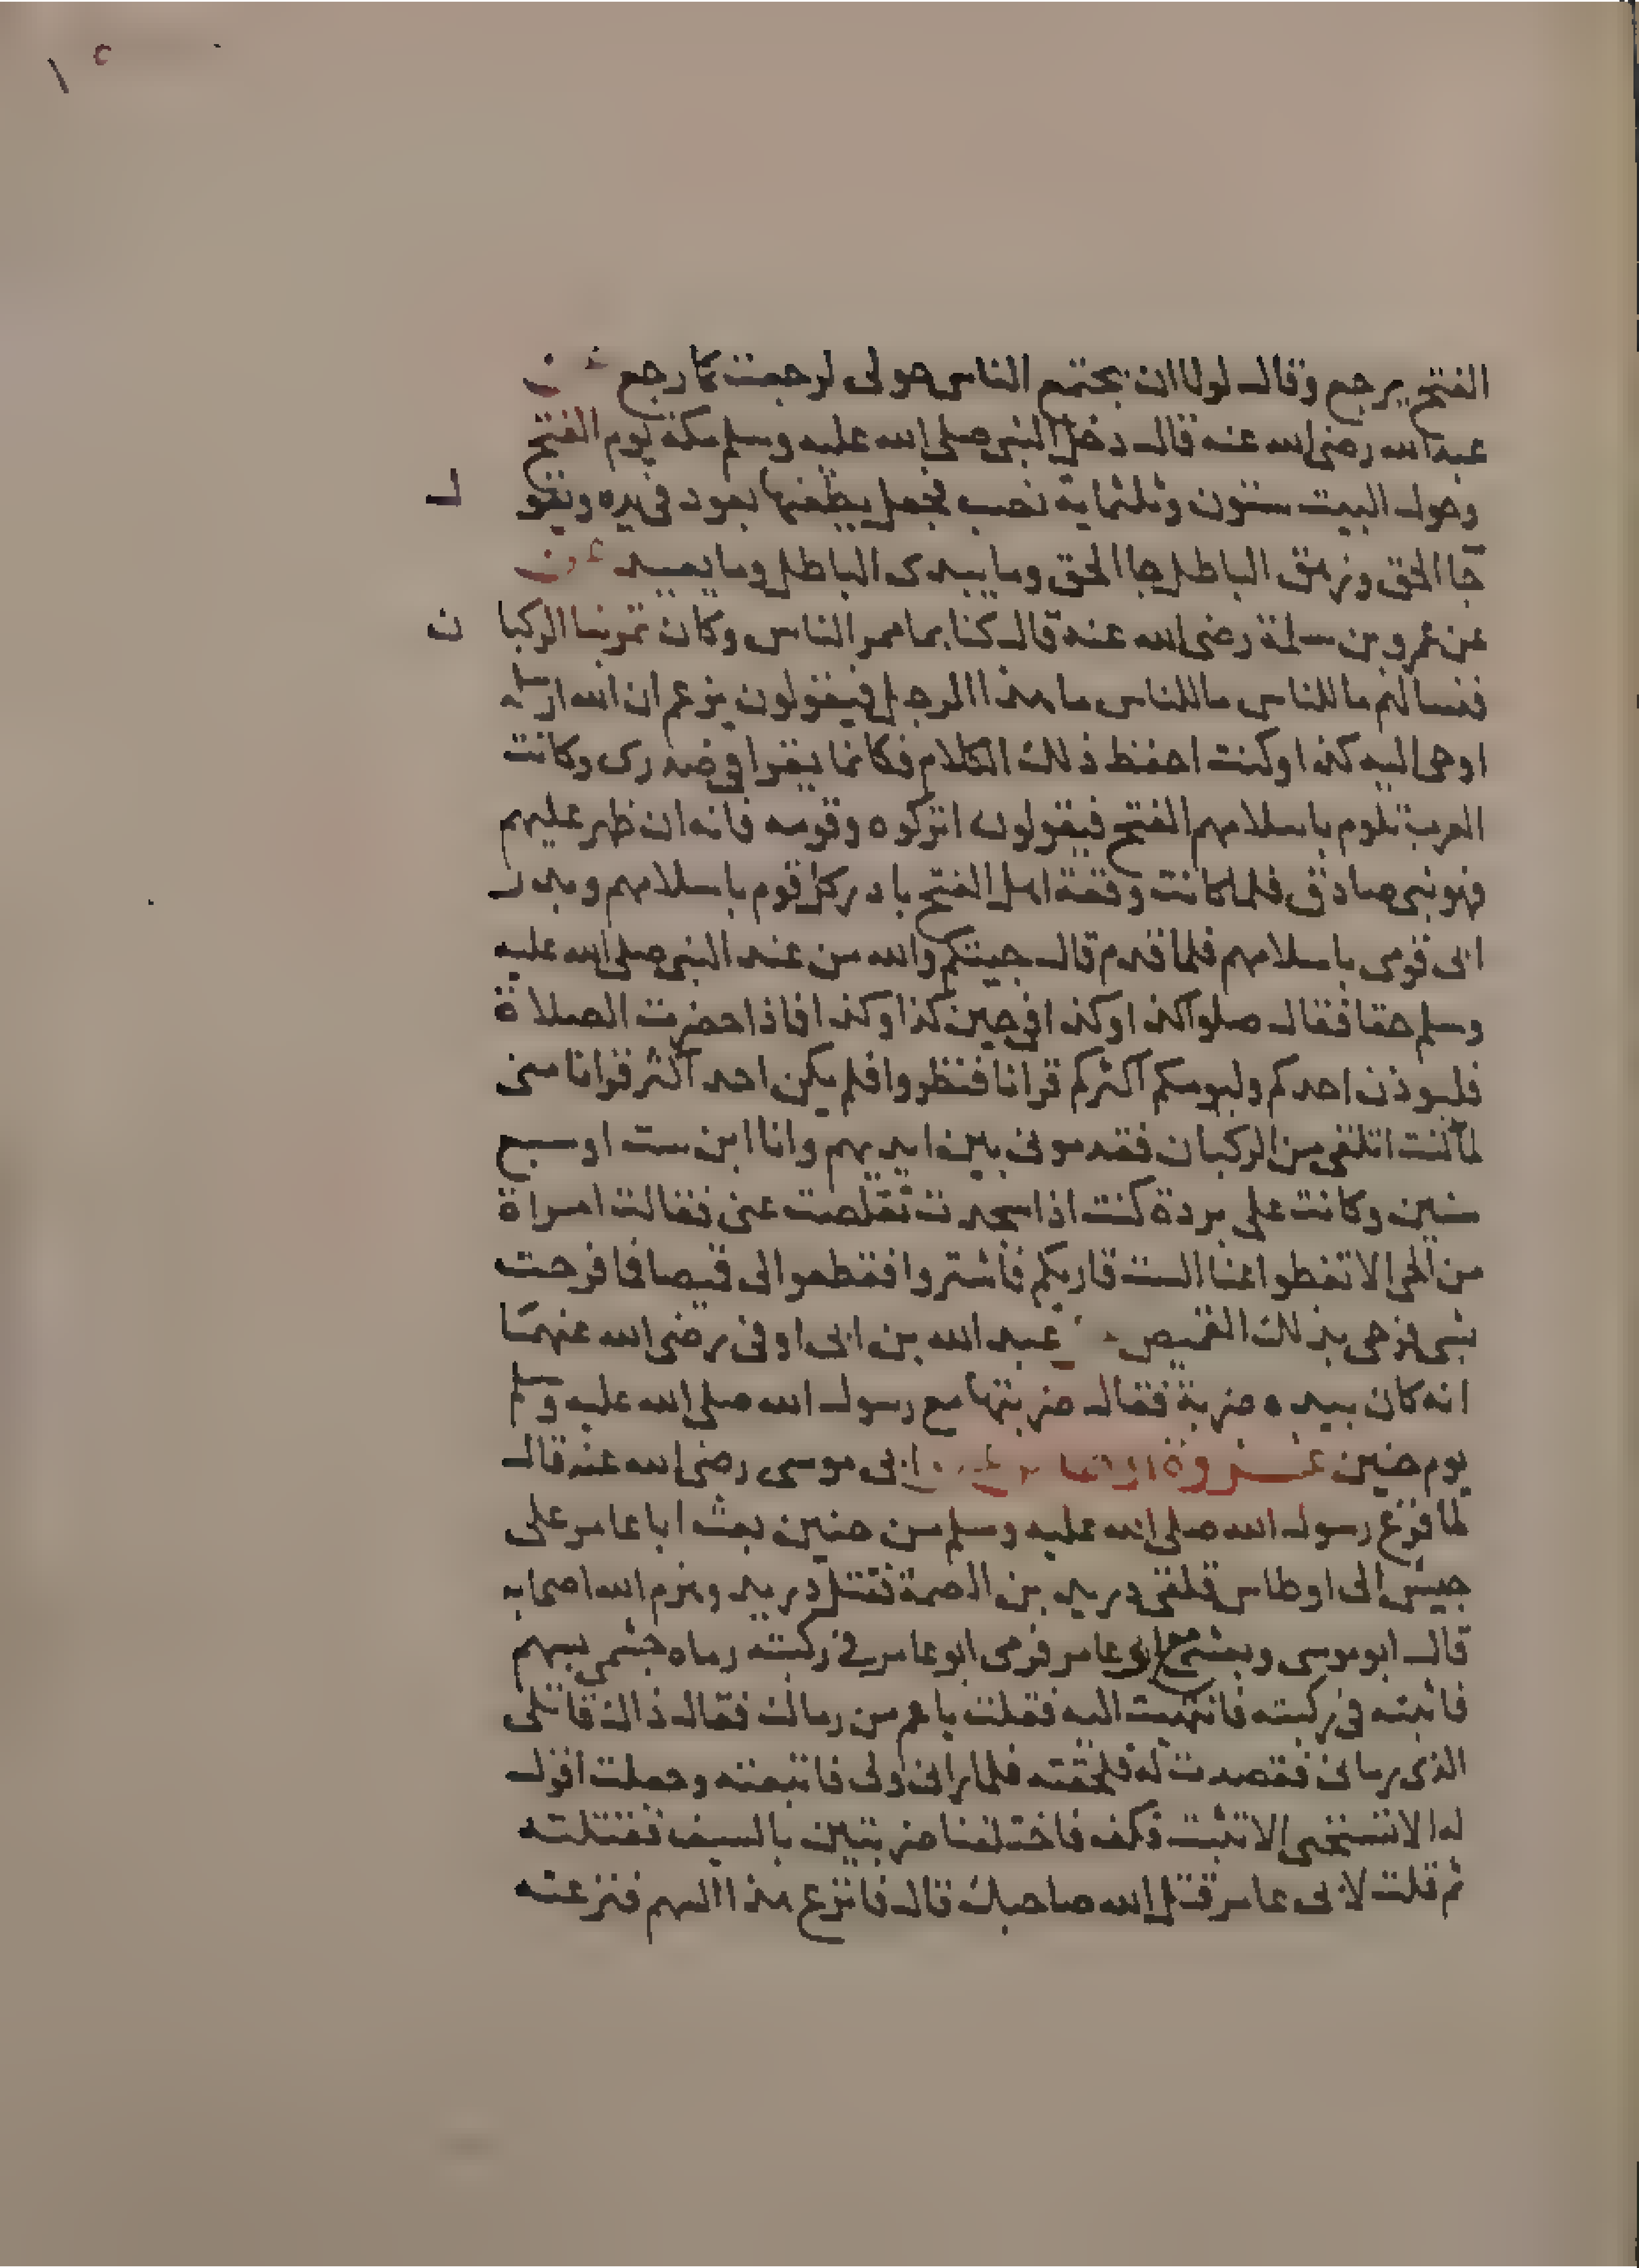 الفتح يرجع وقال لولا ان يجتمع الناس حولى لرجعت كما رجع عن
عبد الله رضى الله عنه قال دخل النبى صلى الله عليه وسلم مكة يوم الفتح
وحول البيت ستون وثلثماية نصب فجعل يطعنها بعود فى يده ويقو ل
جا الحق وزهق الباطل جا الحق وما يبدى الباطل وما يعيد عن
عن عمرو بن سلمة رضى الله عنه قال كنا بما ممر الناس وكان تمر بنا الركبا ن
فنسالهم ما للناس ما للناس ما هذا الرجل فيقولون يزعم ان الله ارسله
اوحى اليه كذا وكنت احفظ ذلك الكلام فكانما يقرا فى صدرى وكانت
العرب تلوم باسلامهم الفتح فيقولون اتركوه وقومه فانه ان ظهر عليهم
فهو نبى صادق فلما كانت وقعة اهل الفتح بادر كل قوم باسلامهم وبدر
ابى قومى باسلامهم فلما قدم قال جيتكم والله من عند النبى صلى الله عليه
وسلم حقا فقال صلوا كذا وكذا فى حين كذا وكذا فاذا حضرت الصلاة
فليوذن احدكم وليومكم اكثركم قرانا فنظروا فلم يكن احد اكثر قرانا منى
لما كنت اتلقى من الركبان فقدمونى بين ايديهم وانا ابن ست او سبع
سنين وكانت على بردة كنت اذا سجدت تقلصت عنى فقالت امراة
من الحى الا تغطوا عنا است قاريكم فاشتروا فقطعوا لى قميصا فما فرحت
بشى فرحى بذلك القميص عبد الله بن ابى اوفى رضى الله عنهما
انه كان بيده ضربة فقال ضربتها مع رسول الله صلى الله عليه وسلم
يوم حنين غزوة اوطاس عن ابى موسى رضى الله عنه قال
لما فرغ رسول الله صلى الله عليه وسلم من حنين بعث ابا عامر على
جيش الى اوطاس فلقى دريد بن الصمة فقتل دريد وهزم الله اصحابه
قال ابو موسى وبعثنى مع ابو عامر فرمى ابو عامر فى ركبته رماه جشمى بسهم
فاثبته فى ركبته فانتهيت اليه فقلت يا عم من رماك فقال ذاك قاتلى
الذى رمانى فقصدت له فلحقته فلما رانى ولى فاتبعته وجعلت اقول
له الا تستحى الا تثبت فكف فاختلفنا ضربتين بالسيف فقتلته
ثم قلت لابى عامر قتل الله صاحبك قال فانزع هذا السهم فنزعته